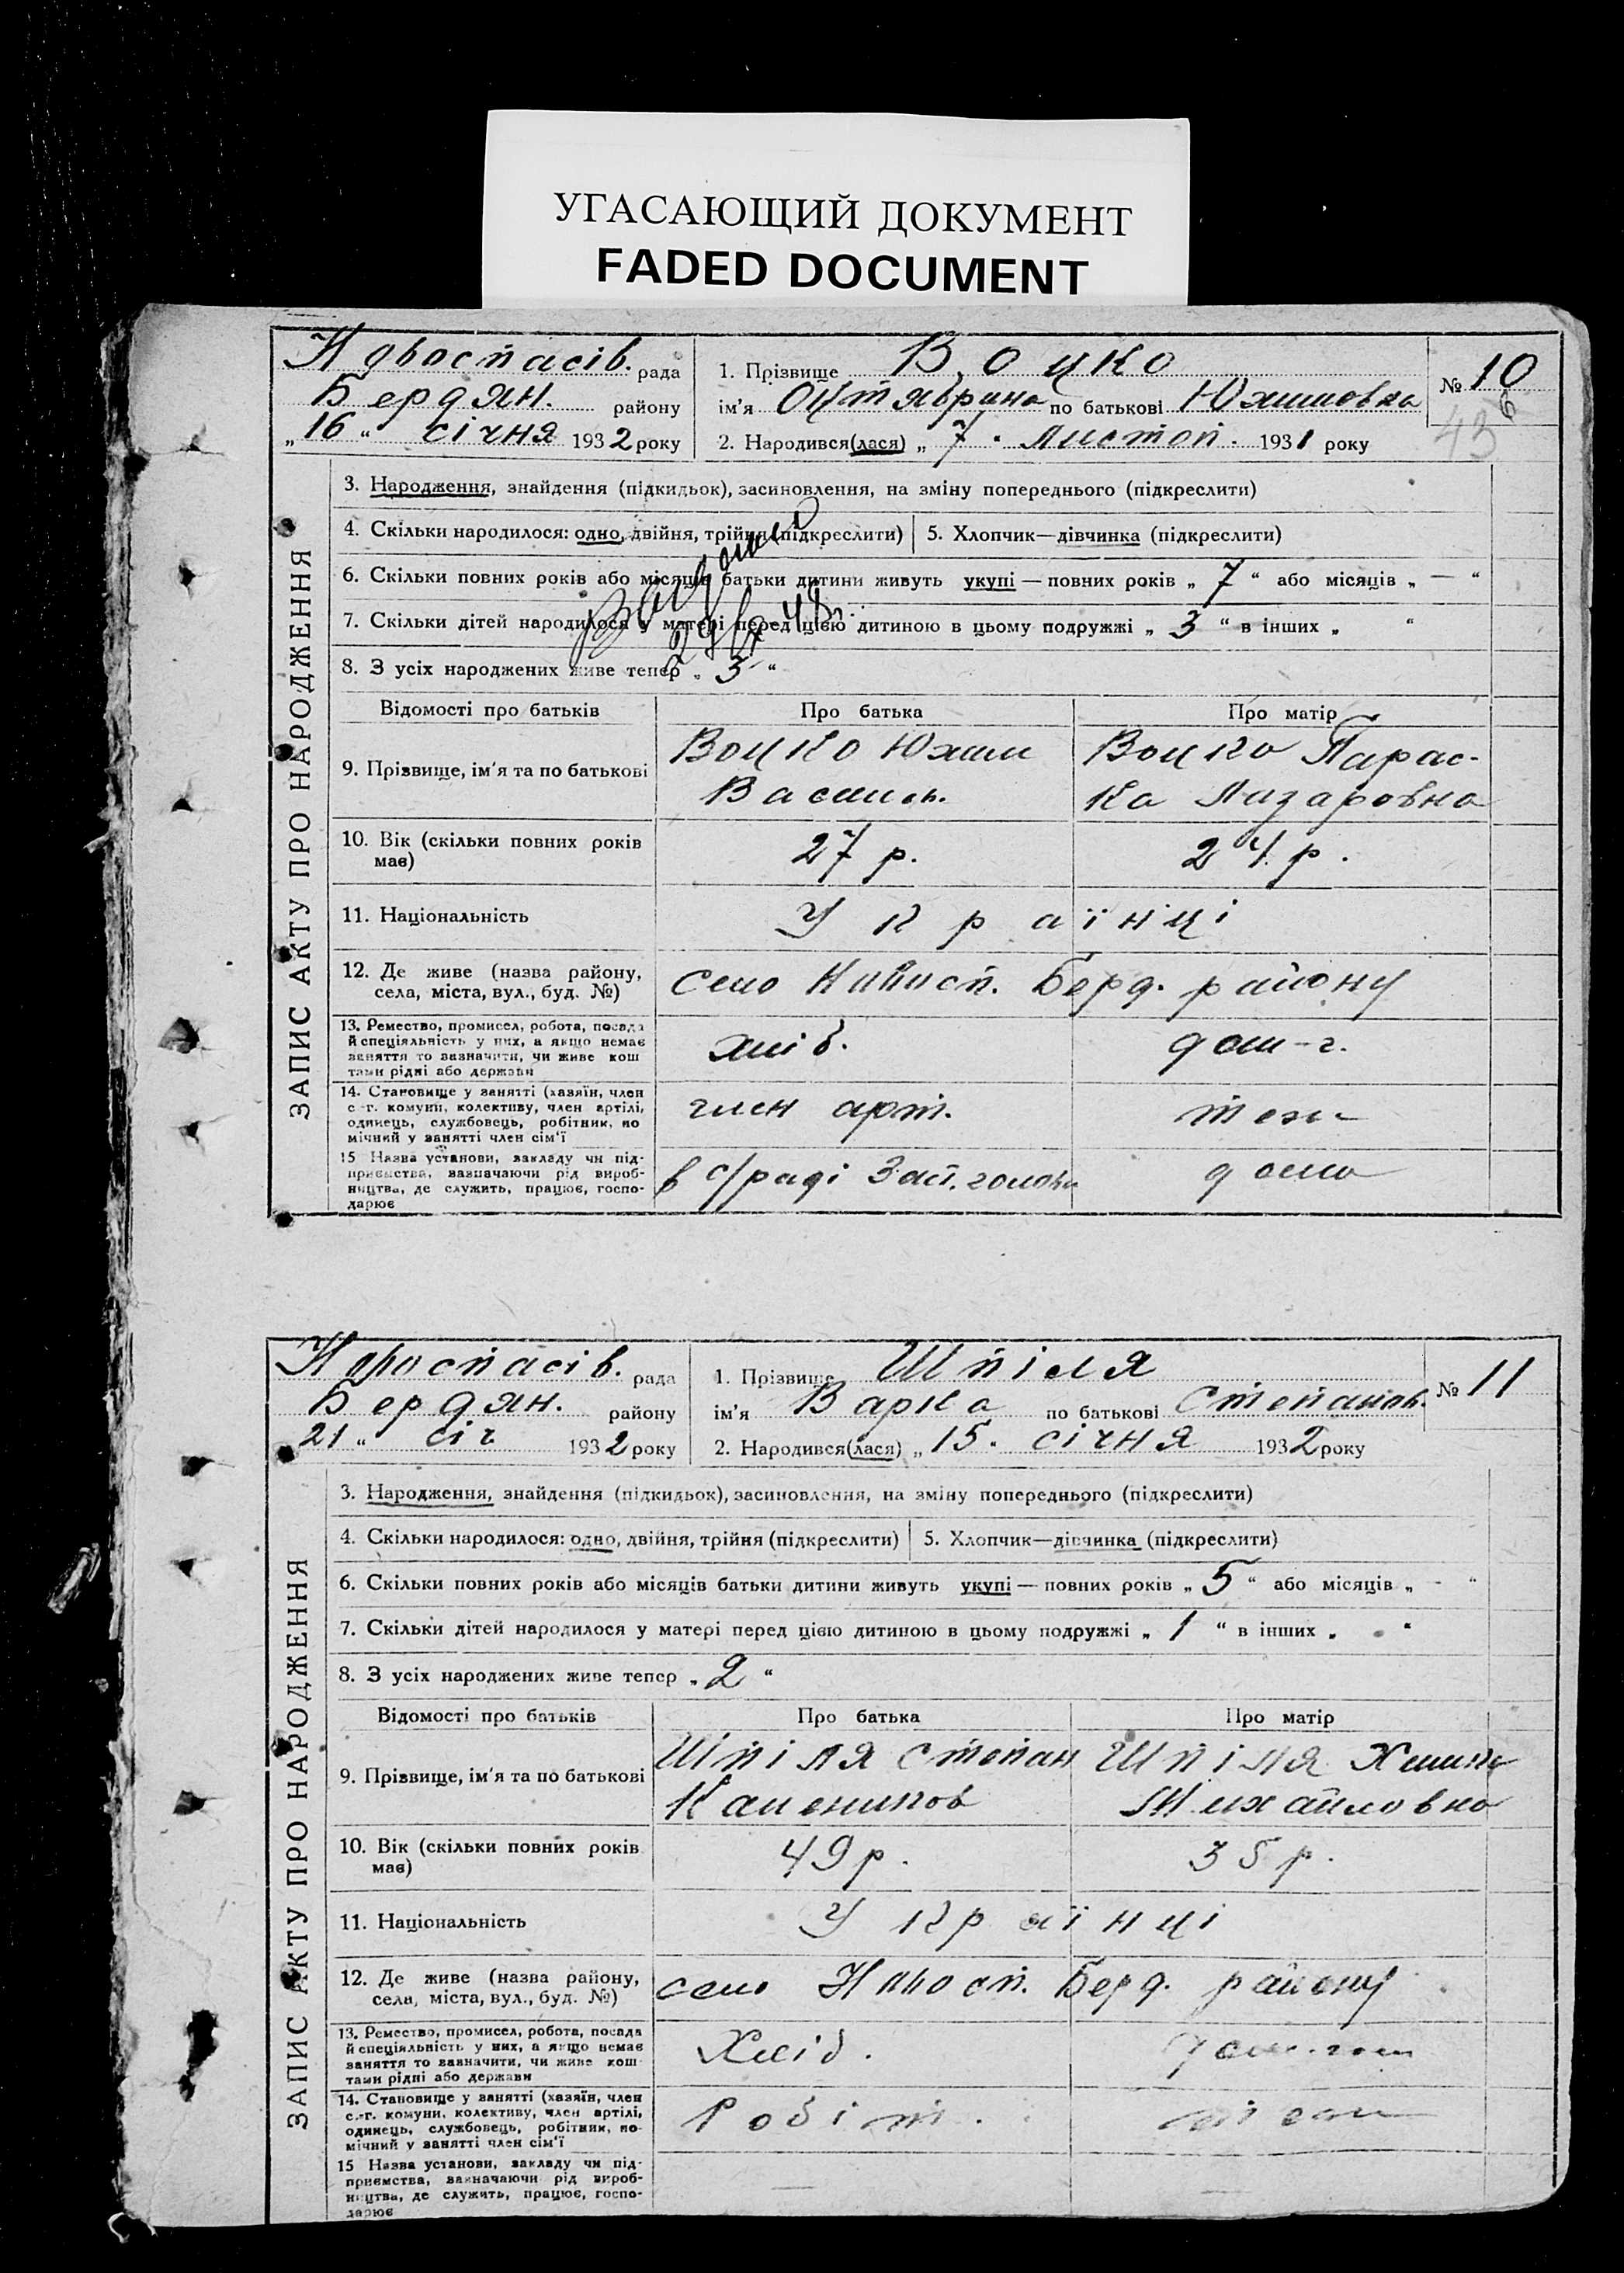 УГАСАЮЩИЙ ДОКУМЕНТ
FADED DOCUMENT
Новоспасів. рада
Бердян. району
„16“ січня 1932 року
1. Прізвище Воцко
ім'я Октябрина по батькові Юхимовна
2. Народився(лася) „7. Листоп. 1931 року
№ 10
6
43
ЗАПИС АКТУ ПРО НАРОДЖЕННЯ
3. Народження, знайдення (підкидьок), засиновлення, на зміну попереднього (підкреслити)
4. Скільки народилося: одно, двійня, трійня (підкреслити) 5. Хлопчик—дівчинка (підкреслити)
6. Скільки повних років або місяців батьки дитини живуть укупі — повних років „7“ або місяців „—“
7. Скільки дітей народилося у матері перед цією дитиною в цьому подружжі „3“ в інших „ “
8. З усіх народжених живе тепер „3“
Відомості про батьків Про батька Про матір
9. Прізвище, ім'я та по батькові
Воцко Юхим
Васильов.
Воцко Парас-
ка Лазаровна
10. Вік (скільки повних років
має)
27 р. 24 р.
11. Національність Українці
12. Де живе (назва району,
села, міста, вул., буд. №)
Село Новосп. Берд. району
13. Ремество, промисел, робота, посада
й спеціяльність у них, а якщо немає
заняття то зазначити, чи живе кош
тами рідні або держави
хліб. дом-г.
14. Становище у занятті (хазяїн, член
с.-г. комуни, колективу, член артілі,
одинець, службовець, робітник, по
мічний у занятті член сім'ї
член арт. теж
15 Назва установи, закладу чи під-
приємства, зазначаючи рід вироб-
ництва, де служить, працює, госпо-
дарює
в с/раді Заст. голови дома
Новоспасів. рада
Бердян. району
21 “ січ 1932 року
1. Прізвище Шпіля
ім'я Варка по батькові Степанов.
2. Народився(лася) „15. січня 1932 року
№ 11
ЗАПИС АКТУ ПРО НАРОДЖЕННЯ
3. Народження, знайдення (підкидьок), засиновлення, на зміну попереднього (підкреслити)
4. Скільки народилося: одно, двійня, трійня (підкреслити) 5. Хлопчик—дівчинка (підкреслити)
6. Скільки повних років або місяців батьки дитини живуть укупі — повних років „5“ або місяців „-“
7. Скільки дітей народилося у матері перед цією дитиною в цьому подружжі „1“ в інших „ “
8. З усіх народжених живе тепер „2“
Відомості про батьків Про батька Про матір
9. Прізвище, ім'я та по батькові
Шпіля Степан
Шпіля
Михайловна
10. Вік (скільки повних років
має)
49 р. 35 р.
11. Національність Українці
12. Де живе (назва району,
села, міста, вул., буд. №)
село Новосп. Берд. району
13. Ремество, промисел, робота, посада
й спеціяльність у них, а якщо немає
заняття то зазначити, чи живе кош
тами рідні або держави
Хліб. дом. гос
14. Становище у занятті (хазяїн, член
с.-г. комуни, колективу, член артілі,
одинець, службовець, робітник, по-
мічний у занятті член сім'ї
Робіт. теж
15 Назва установи, закладу чи під-
приємства, зазначаючи рід вироб-
ництва, де служить, працює, госпо-
дарює